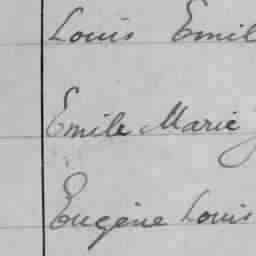 Louis Emil
Emile Marie
Eugène Louis